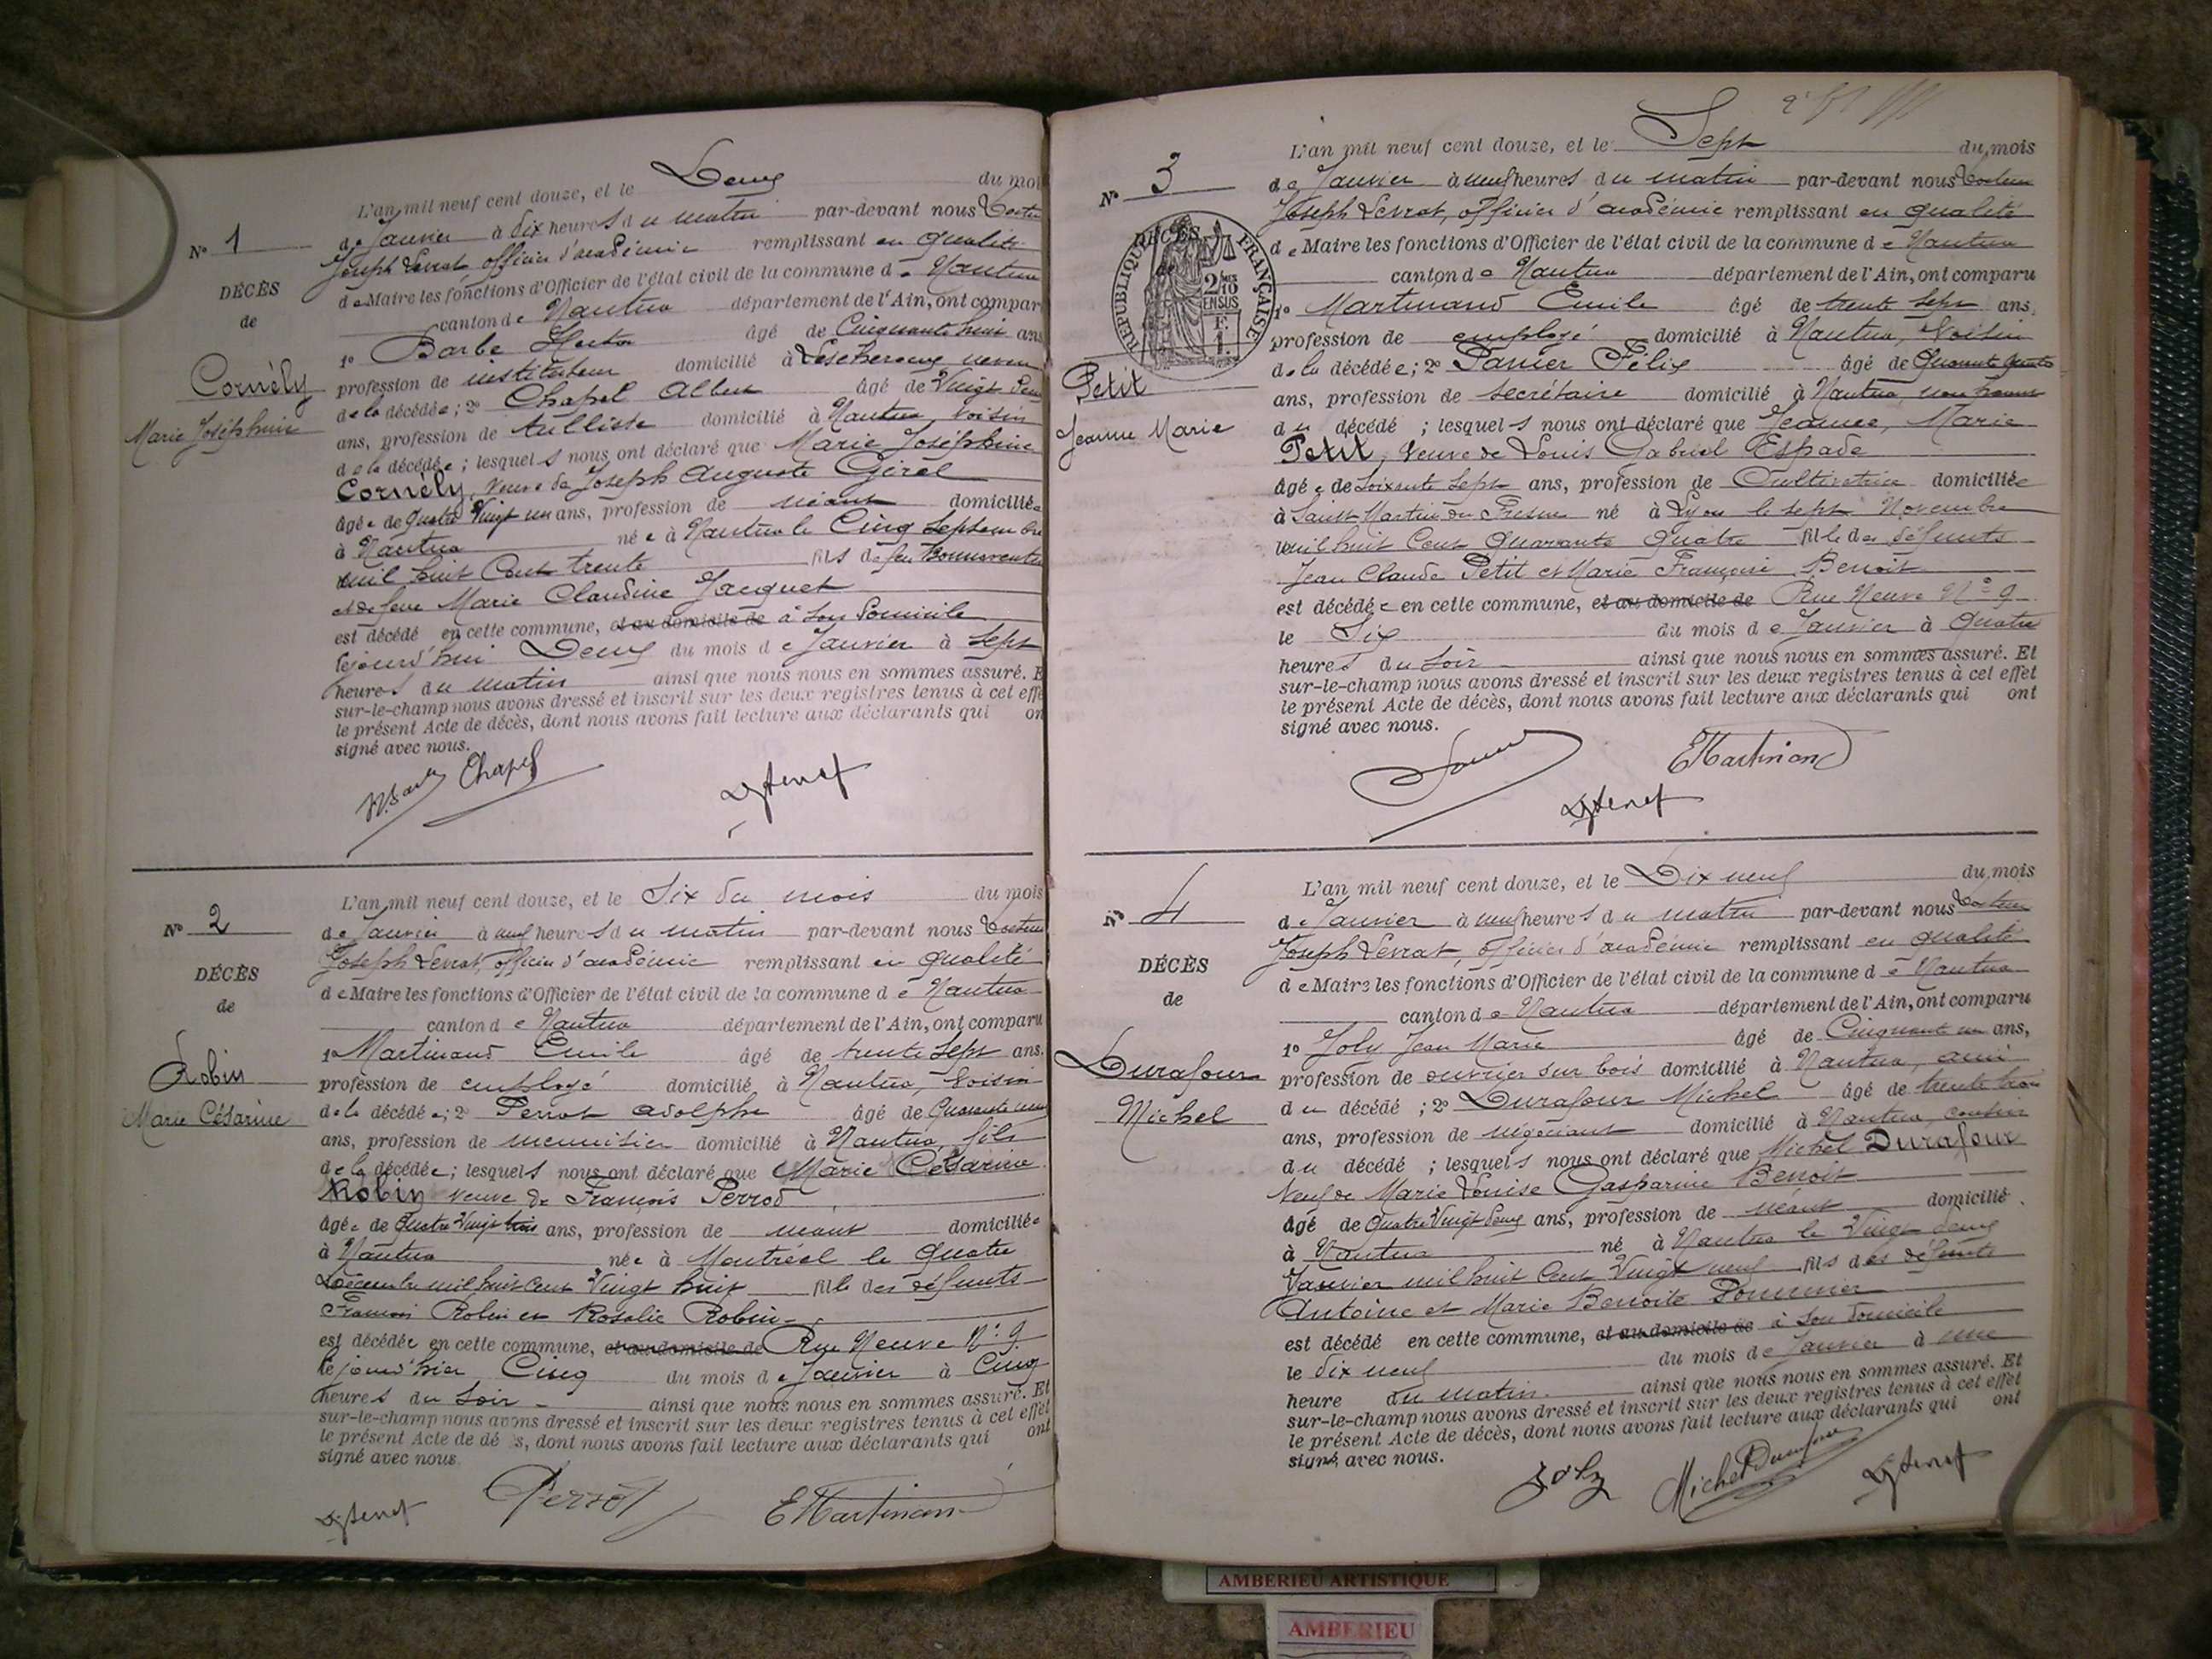 L'an mil neuf cent douze, et le Deux du moi
N° 1
de Janvier à dix heures du matin par-devant nous Docteur
Joseph Levrat, officier d'académie remplissant en qualité
de Maire les fonctions d'Officier de l'état civil de la commune de Nantua
canton de Nantua département de l'Ain, ont compar
DÉCÈS
de
Cornély
Marie Joséphine
1° Barbe âgé de Cinquante huit ans
profession de instituteur domicilié à neveu
de la décédée; 2° Chapel Albert âgé de Vingt
ans, profession de tulliste domicilié à Nantua, voisin
de la décédée; lesquels nous ont déclaré que Marie Joséphine
Cornély, veuve de Joseph Auguste Girel
âgée de Quatre Vingt un ans, profession de néant domiciliée
à Nantua née à Nantua le Cinq Septembre
mil huit Cent trente fils de feu Bonnaventure
et de feue Marie Claudine Jacquet
est décédé en cette commune, et au domicile de à son domicile
cejourd'hui Deux du mois de Janvier à Sept
heures du matin ainsi que nous nous en sommes assuré. E
sur-le-champ nous avons dressé et inscrit sur les deux registres tenus à cet effe
le présent Acte de décès, dont nous avons fait lecture aux déclarants qui on
signé avec nous.
Chapel
L'an mil neuf cent douze, et le Six du mois du mois
N° 2
de Janvier à neuf heures du matin par-devant nous Docteur
Joseph Levrat, officier d'académie remplissant en qualité
de Maire les fonctions d'Officier de l'état civil de la commune de Nantua
canton de Nantua département de l'Ain, ont comparu
DÉCÈS
de
Robin
Marie Césarine
1° Martinand Emile âgé de trente Sept ans.
profession de employé domicilié à Nantua, voisin
de la décédée; 2° Perrot Adolphe âgé de Quarante
ans, profession de menuisier domicilié à Nantua, fils
de la décédée; lesquels nous ont déclaré que Marie Césarine
Robin veuve de François Perrod
âgée de Quatre Vingt trois ans, profession de néant domiciliée
à Nantua née à Montréal le Quatre
Décembre mil huit Cent Vingt huit fille des défunts
François Robin et Rosalie Robin
est décédée en cette commune, et au domicile de Rue Neuve N° 9
le jour d'hier Cinq du mois de Janvier à Cinq
heures du Soir ainsi que nous nous en sommes assuré. Et
sur-le-champ nous avons dressé et inscrit sur les deux registres tenus à cet effet
le présent Acte de dé s, dont nous avons fait lecture aux déclarants qui ont
signé avec nous.
Perrot EMartinand
L'an mil neuf cent douze, et le Sept du mois
N° 3
de Janvier à neuf heures du matin par-devant nous Docteur
Joseph Levrat, officier d'académie remplissant en qualité
de Maire les fonctions d'Officier de l'état civil de la commune de Nantua
canton de Nantua département de l'Ain, ont comparu
DÉCÈS
de
RÉPUBLIQUE FRANÇAISE
2/10 EN SUS
Petit
Jeanne Marie
1° Martinand Emile âgé de trente Sept ans,
profession de employé domicilié à Nantua, Voisin
de la décédée; 2° Panier Félix âgé de Quarante Quatre
ans, profession de secrétaire domicilié à Nantua, non parent
du décédé; lesquels nous ont déclaré que Jeanne, Marie
Petit, Veuve de Louis Gabriel Espade
âgée de Soixante Sept ans, profession de Cultivatrice domiciliée
à Saint Martin du Fresne né à Lyon le sept Novembre
mil huit Cent Quarante Quatre fille des défunts
Jean Claude Petit et Marie Françoise Benoit
est décédée en cette commune, et au domicile de Rue Neuve N° 9
le Six du mois de Janvier à Quatre
heures du Soir ainsi que nous nous en sommes assuré. Et
sur-le-champ nous avons dressé et inscrit sur les deux registres tenus à cet effet
le présent Acte de décès, dont nous avons fait lecture aux déclarants qui ont
signé avec nous.
EMartinand
L'an mil neuf cent douze, et le Dix neuf du mois
N° 4
de Janvier à neuf heures du matin par-devant nous Docteur
Joseph Levrat, officier d'académie remplissant en qualité
de Maire les fonctions d'Officier de l'état civil de la commune de Nantua
canton de Nantua département de l'Ain, ont comparu
DÉCÈS
de
Durafour
Michel
1° Joly Jean Marie âgé de Cinquante un ans,
profession de ouvrier sur bois domicilié à Nantua, ami
du décédé; 2° Durafour Michel âgé de trente trois
ans, profession de négociant domicilié à Nantua, cousin
du décédé; lesquels nous ont déclaré que Michel Durafour
Veuf de Marie Louise Gasparine Benoit
âgé de Quatre Vingt Deux ans, profession de néant domicilié
à Nantua né à Nantua le Vingt Deux
Janvier mil huit Cent Vingt neuf fils des défunts
Antoine et Marie Benoite Pommier
est décédé en cette commune, et au domicile de à son domicile
le dix neuf du mois de Janvier à une
heure du matin ainsi que nous nous en sommes assuré. Et
sur-le-champ nous avons dressé et inscrit sur les deux registres tenus à cet effet
le présent Acte de décès, dont nous avons fait lecture aux déclarants qui ont
signé avec nous.
Joly Michel Durafour
AMBERIEU ARTISTIQUE
AMBERIEU